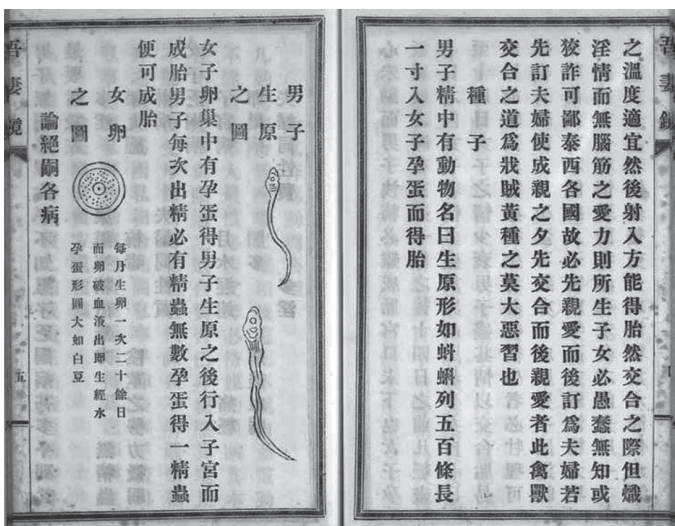 之溫度適宜然後射入方能得胎然交合之際但熾
淫情而無腦筋之愛力則所生子女必愚蠢無知或
狡詐可鄙泰西各國故必先親愛而後訂爲夫婦若
先訂夫婦使成親之夕先交合而後親愛者此禽獸
交合之道爲戕賊黃種之莫大惡習也
種子
男子精中有動物名曰生原形如蝌蚪列五百條長
一寸入女子孕蛋而得胎
吾妻鏡
男子
生原
之圖
女子卵巢中有孕蛋得男子生原之後行入子宮而
成胎男子每次出精必有精蟲無數孕蛋得一精蟲
便可成胎
女卵
之圖
每月生卵一次二十餘日
而卵破血液出卽生經水
孕蛋形圓大如白豆
論絕嗣各病
吾妻鏡
五